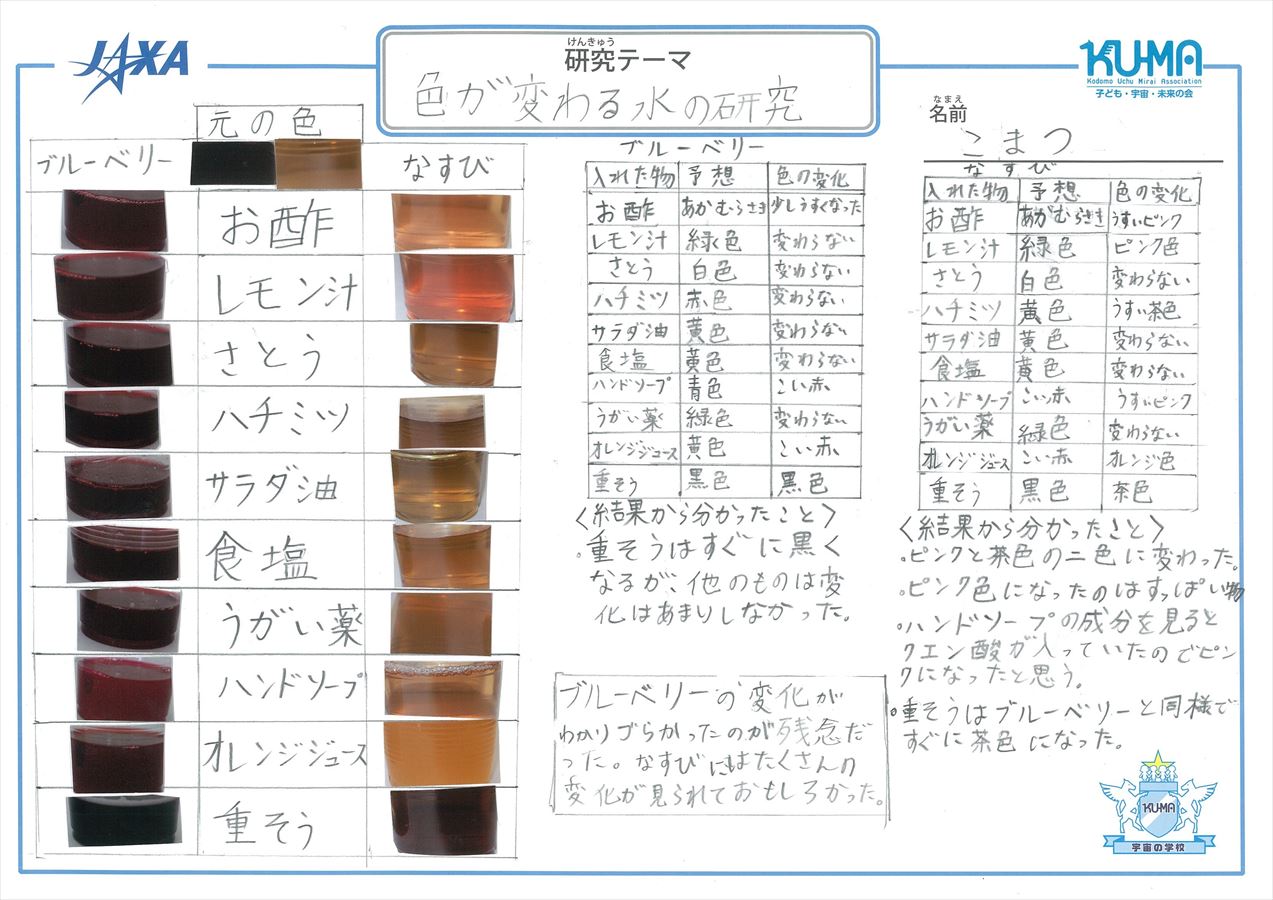 JAXA
けんきゅう
研究テーマ
色が変わる水の研究
KU-MA
Kodomo Uchu Mirai Association
子ども・宇宙・未来の会
なまえ
名前
こまつ
元の色
ブルーベリー
なすび
お酢
レモン汁
さとう
ハチミツ
サラダ油
食塩
うがい薬
ハンドソープ
オレンジジュース
重そう
ブルーベリー
入れた物 予想 色の変化
お酢 あかむらさき 少しうすくなった
レモン汁 緑色 変わらない
さとう 白色 変わらない
ハチミツ 赤色 変わらない
サラダ油 黄色 変わらない
食塩 黄色 変わらない
ハンドソープ 青色 こい赤
うがい薬 緑色 変わらない
オレンジジュース 黄色 こい赤
重そう 黒色 黒色
〈結果から分かったこと〉
・重そうはすぐに黒く
なるが、他のものは変
化はあまりしなかった。
ブルーベリーの変化が
わかりづらかったのが残念だ
った。なすびにはたくさんの
変化が見られておもしろかった。
なすび
入れた物 予想 色の変化
お酢 あかむらさき うすいピンク
レモン汁 緑色 ピンク色
さとう 白色 変わらない
ハチミツ 黄色 うすい茶色
サラダ油 黄色 変わらない
食塩 黄色 変わらない
ハンドソープ こい赤 うすいピンク
うがい薬 緑色 変わらない
オレンジジュース こい赤 オレンジ色
重そう 黒色 茶色
〈結果から分かったこと〉
・ピンクと茶色の二色に変わった。
・ピンク色になったのはすっぱい物
・ハンドソープの成分を見ると
クエン酸が入っていたのでピン
クになったと思う。
・重そうはブルーベリーと同様で
すぐに茶色になった。
KU-MA
宇宙の学校